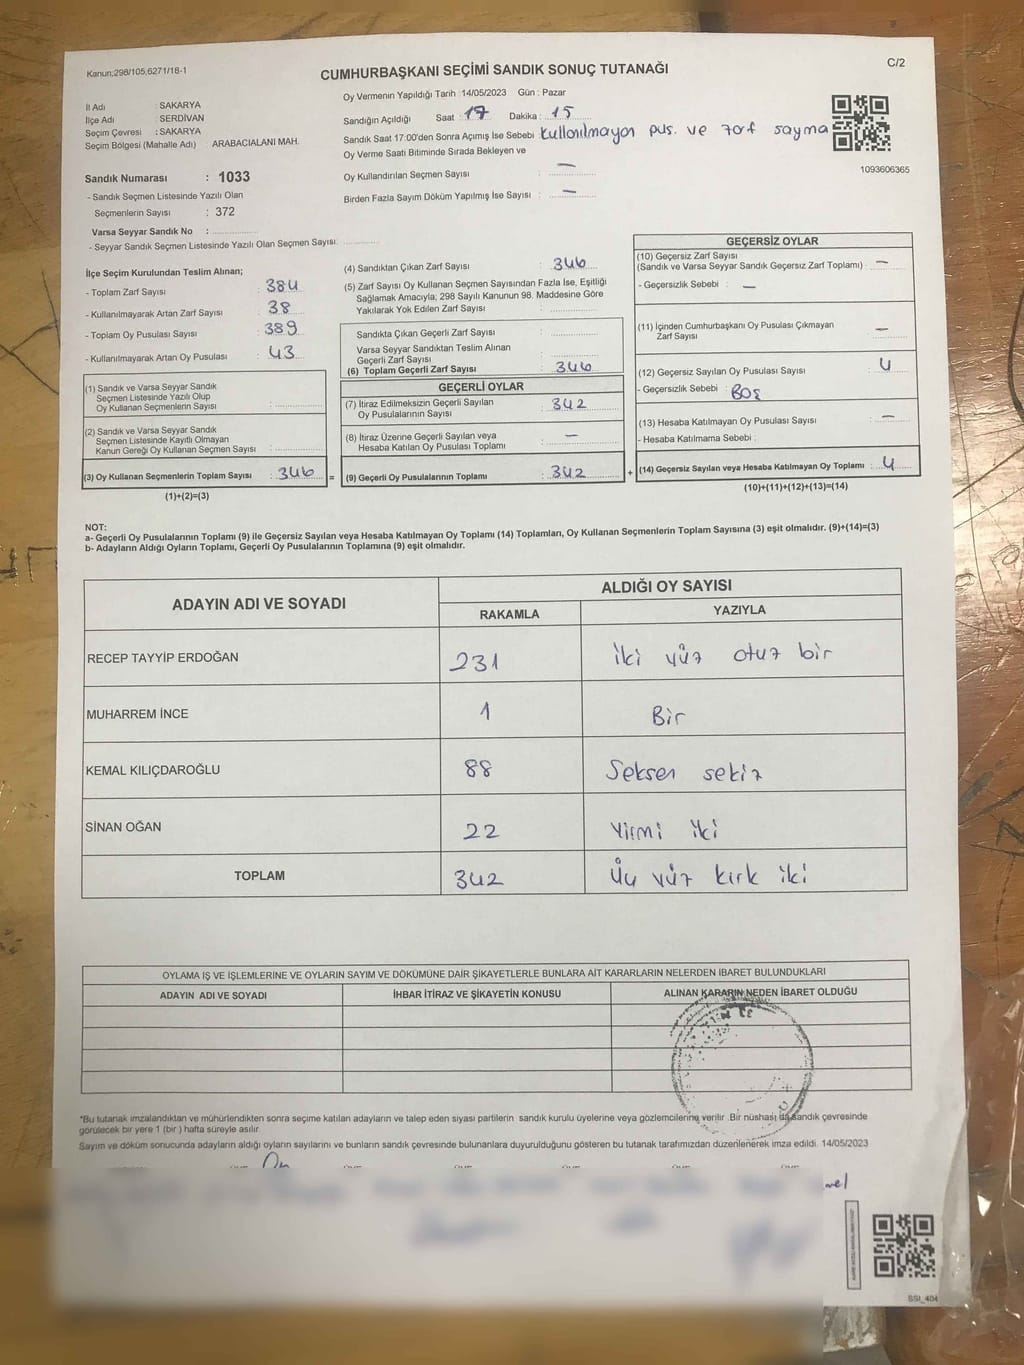 Kanun;298/105,6271/18-1
C/2
CUMHURBAŞKANI SEÇİMİ SANDIK SONUÇ TUTANAĞI
İl Adı : SAKARYA
İlçe Adı : SERDİVAN
Seçim Çevresi : SAKARYA
Seçim Bölgesi (Mahalle Adı) ARABACIALANI MAH.
Sandık Numarası : 1033
- Sandık Seçmen Listesinde Yazılı Olan
Seçmenlerin Sayısı : 372
Varsa Seyyar Sandık No :
- Seyyar Sandık Seçmen Listesinde Yazılı Olan Seçmen Sayısı:
Oy Vermenin Yapıldığı Tarih : 14/05/2023 Gün : Pazar
Sandığın Açıldığı Saat : 17 Dakika : 15
Sandık Saat 17:00'den Sonra Açımış İse Sebebi kullanılmayan pus. ve zarf sayma
Oy Verme Saati Bitiminde Sırada Bekleyen ve
Oy Kullandırılan Seçmen Sayısı : —
Birden Fazla Sayım Döküm Yapılmış İse Sayısı : —
1093606365
İlçe Seçim Kurulundan Teslim Alınan;
- Toplam Zarf Sayısı : 384
- Kullanılmayarak Artan Zarf Sayısı : 38
- Toplam Oy Pusulası Sayısı : 389
- Kullanılmayarak Artan Oy Pusulası : 43
(1) Sandık ve Varsa Seyyar Sandık
Seçmen Listesinde Yazılı Olup
Oy Kullanan Seçmenlerin Sayısı :
(2) Sandık ve Varsa Seyyar Sandık
Seçmen Listesinde Kayıtlı Olmayan
Kanun Gereği Oy Kullanan Seçmen Sayısı :
(3) Oy Kullanan Seçmenlerin Toplam Sayısı : 346 =
(1)+(2)=(3)
(4) Sandıktan Çıkan Zarf Sayısı : 346
(5) Zarf Sayısı Oy Kullanan Seçmen Sayısından Fazla İse, Eşitliği
Sağlamak Amacıyla; 298 Sayılı Kanunun 98. Maddesine Göre
Yakılarak Yok Edilen Zarf Sayısı :
Sandıkta Çıkan Geçerli Zarf Sayısı :
Varsa Seyyar Sandıktan Teslim Alınan
Geçerli Zarf Sayısı :
(6) Toplam Geçerli Zarf Sayısı : 346
GEÇERLİ OYLAR
(7) İtiraz Edilmeksizin Geçerli Sayılan
Oy Pusulalarının Sayısı : 342
(8) İtiraz Üzerine Geçerli Sayılan veya
Hesaba Katılan Oy Pusulası Toplamı : —
(9) Geçerli Oy Pusulalarının Toplamı : 342 +
GEÇERSİZ OYLAR
(10) Geçersiz Zarf Sayısı
(Sandık ve Varsa Seyyar Sandık Geçersiz Zarf Toplamı) : —
- Geçersizlik Sebebi : —
(11) İçinden Cumhurbaşkanı Oy Pusulası Çıkmayan
Zarf Sayısı : —
(12) Geçersiz Sayılan Oy Pusulası Sayısı : 4
- Geçersizlik Sebebi : Boş
(13) Hesaba Katılmayan Oy Pusulası Sayısı : —
- Hesaba Katılmama Sebebi :
(14) Geçersiz Sayılan veya Hesaba Katılmayan Oy Toplamı : 4
(10)+(11)+(12)+(13)=(14)
NOT:
a- Geçerli Oy Pusulalarının Toplamı (9) ile Geçersiz Sayılan veya Hesaba Katılmayan Oy Toplamı (14) Toplamları, Oy Kullanan Seçmenlerin Toplam Sayısına (3) eşit olmalıdır. (9)+(14)=(3)
b- Adayların Aldığı Oyların Toplamı, Geçerli Oy Pusulalarının Toplamına (9) eşit olmalıdır.
ADAYIN ADI VE SOYADI
ALDIĞI OY SAYISI
RAKAMLA YAZIYLA
RECEP TAYYİP ERDOĞAN 231 iki yüz otuz bir
MUHARREM İNCE 1 Bir
KEMAL KILIÇDAROĞLU 88 Seksen sekiz
SİNAN OĞAN 22 Yirmi iki
TOPLAM 342 Üç yüz kırk iki
OYLAMA İŞ VE İŞLEMLERİNE VE OYLARIN SAYIM VE DÖKÜMÜNE DAİR ŞİKAYETLERLE BUNLARA AİT KARARLARIN NELERDEN İBARET BULUNDUKLARI
ADAYIN ADI VE SOYADI İHBAR İTİRAZ VE ŞİKAYETİN KONUSU ALINAN KARARIN NEDEN İBARET OLDUĞU
*Bu tutanak imzalandıktan ve mühürlendikten sonra seçime katılan adayların ve talep eden siyasi partilerin sandık kurulu üyelerine veya gözlemcilerine verilir. Bir nüshası da sandık çevresinde
görülecek bir yere 1 (bir ) hafta süreyle asılır.
Sayım ve döküm sonucunda adayların aldığı oyların sayılarını ve bunların sandık çevresinde bulunanlara duyurulduğunu gösteren bu tutanak tarafımızdan düzenlenerek imza edildi. 14/05/2023
SSI_404